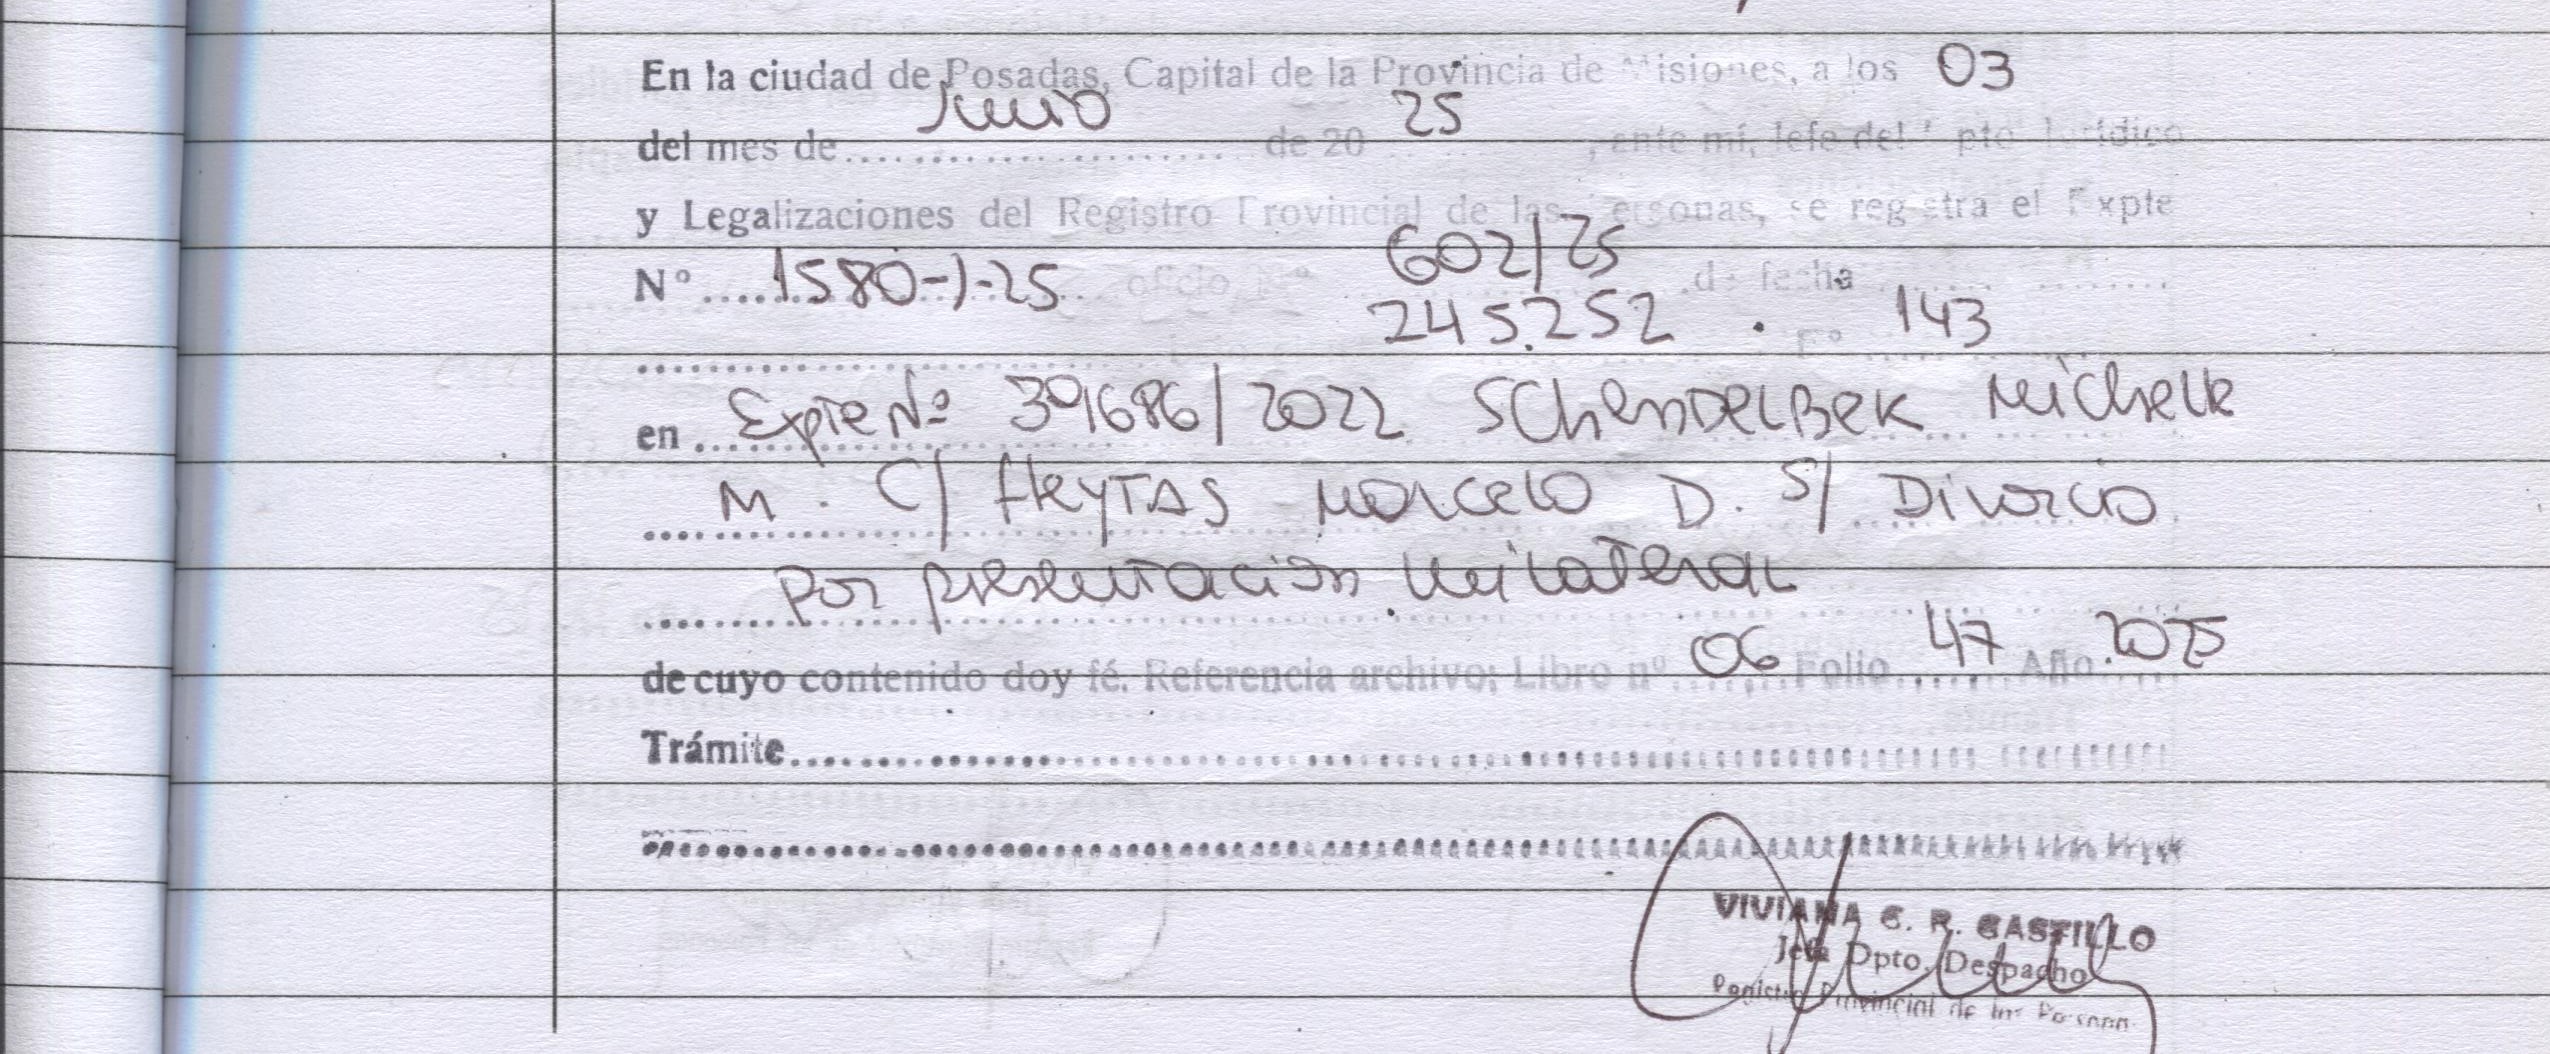 En la ciudad de Posadas, Capital de la Provincia de Misiones, a los 03
del mes de Junio de 20 25, ante mí, Jefe del Dpto Jurídico
y Legalizaciones del Registro Provincial de las Personas, se registra el Expte
N° 1580-J-25 oficio N° 602/25 de fecha
245.252 . F° 143
en Expte Nº 391686/2022 SCHENDELBEK Michelle
M. C/ fleyTAS Marcelo D. S/ Divorcio
por presentacion unilateral
de cuyo contenido doy fé. Referencia archivo; Libro nº 06 Folio 47 Año 2025
Trámite
VIVIANA C. R. CASTILLO
Jefa Dpto. Despacho
Registro Provincial de las Personas